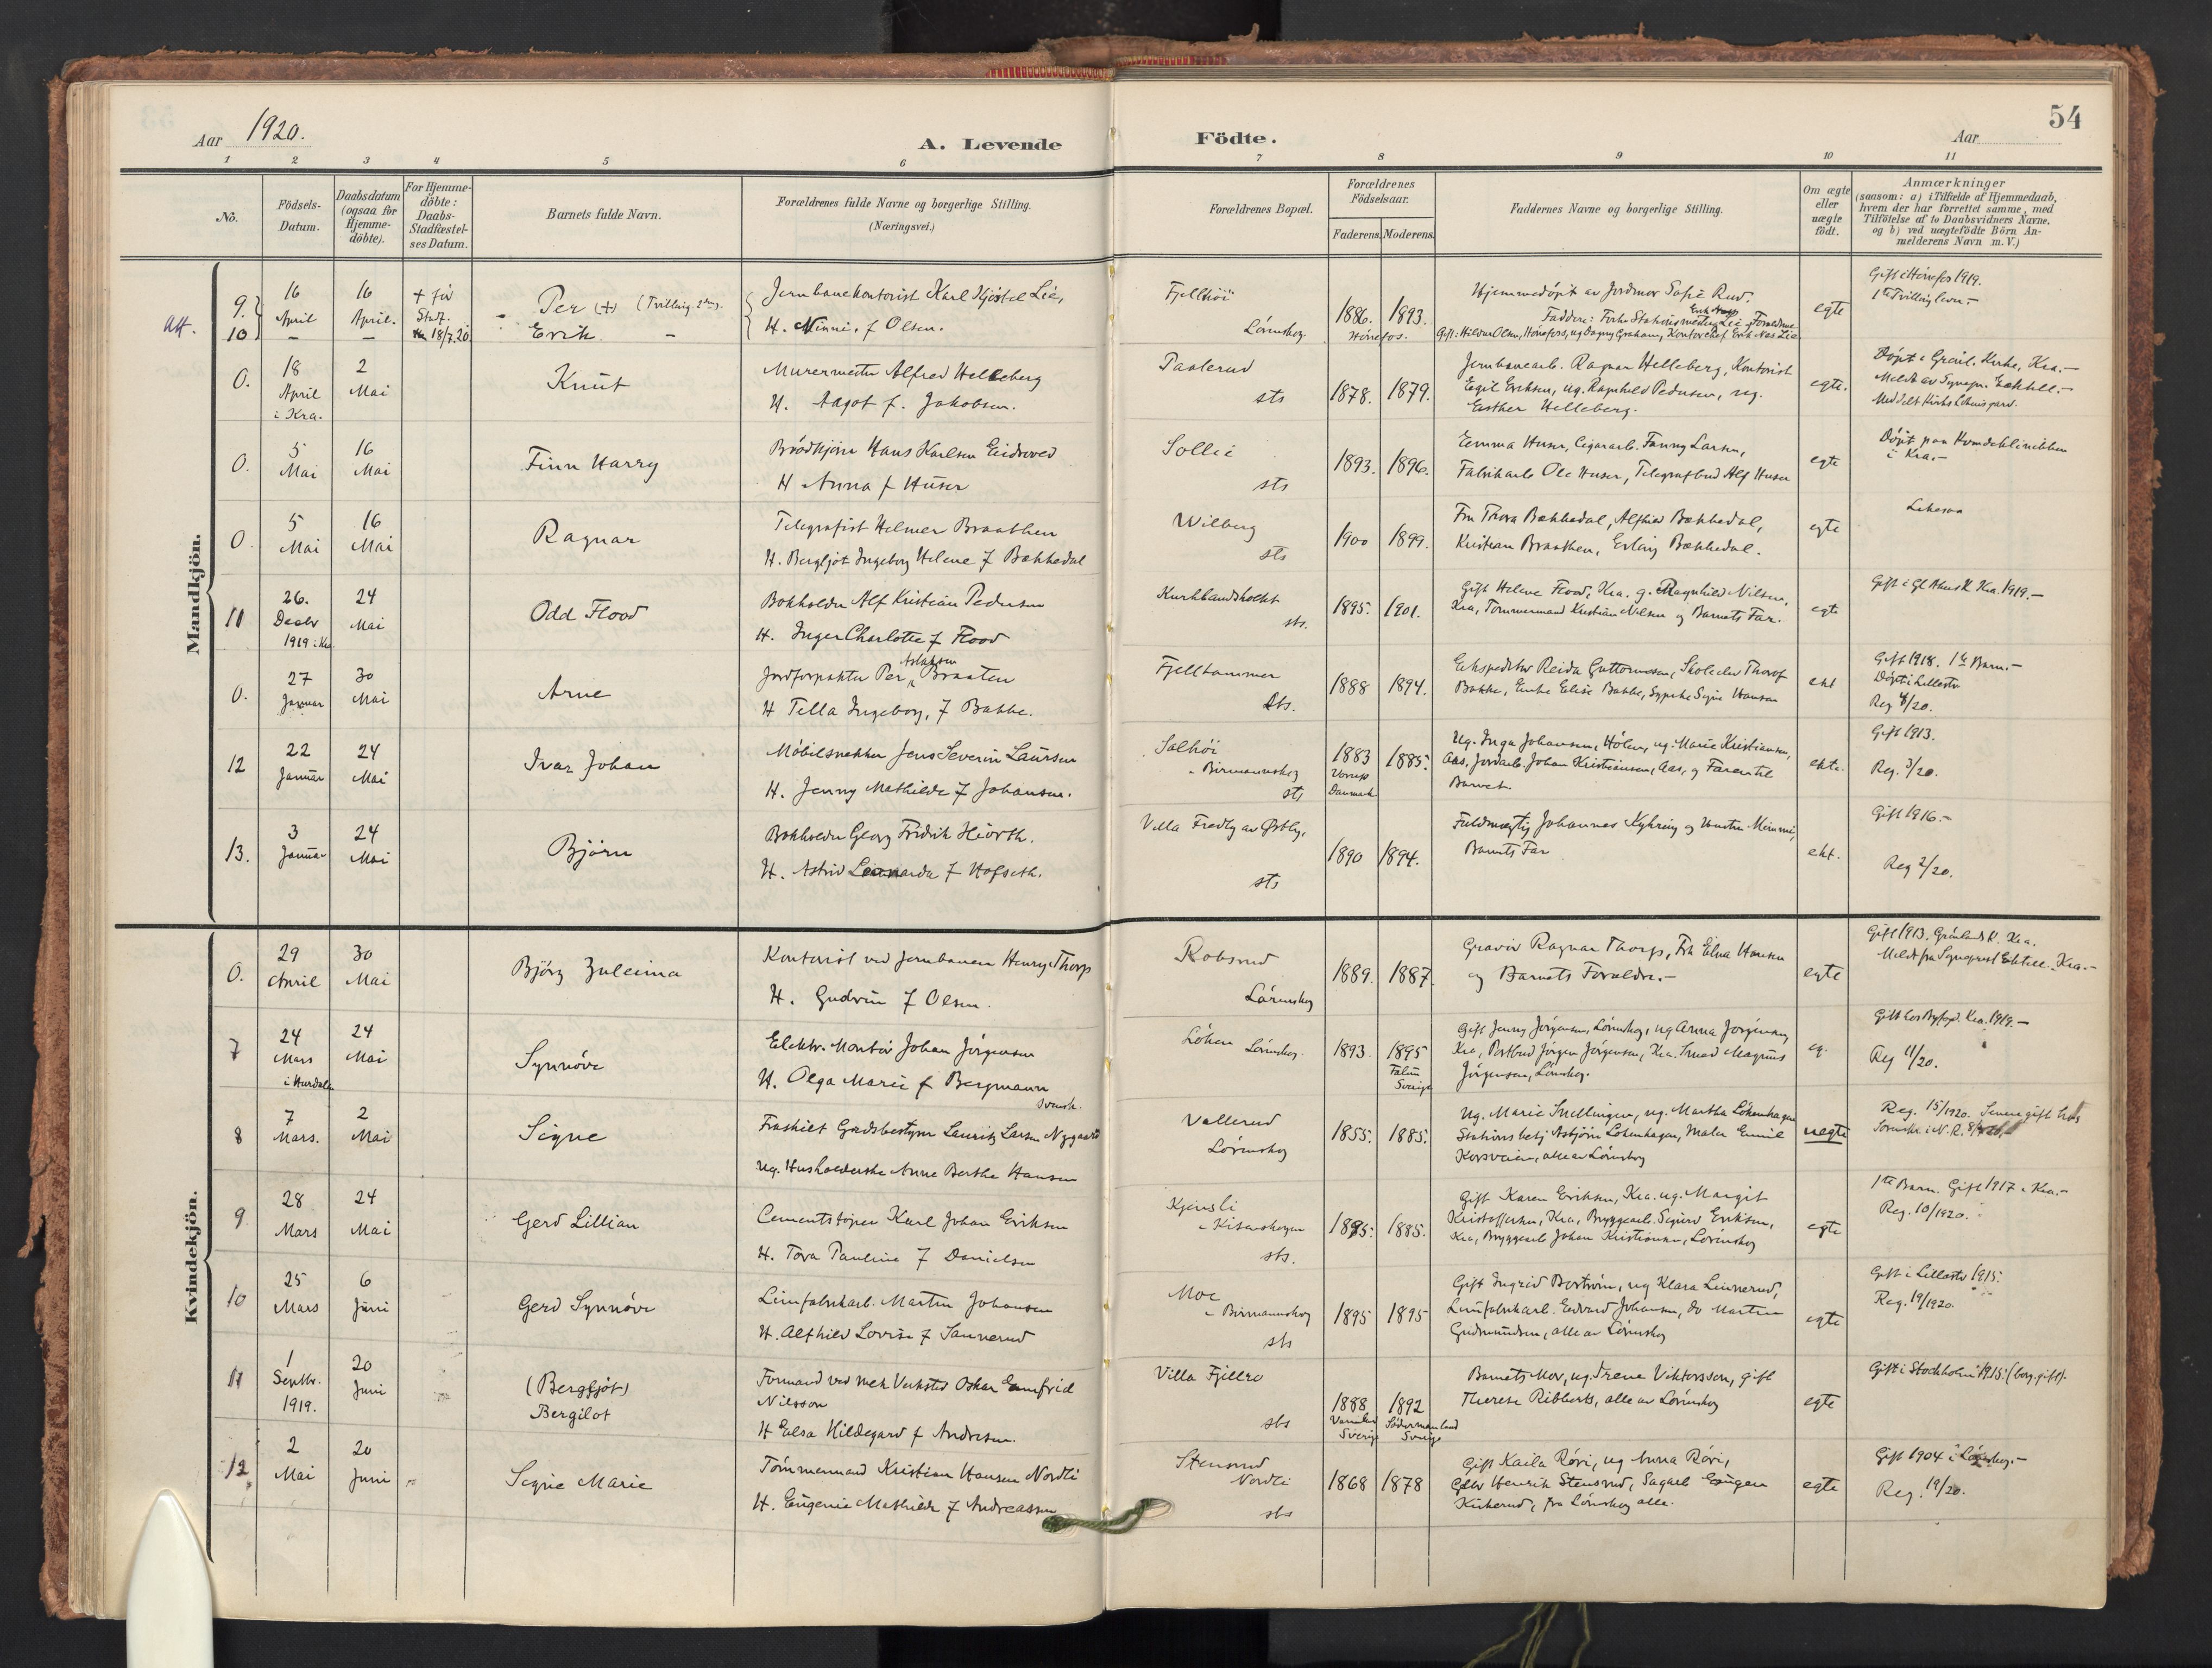 54
Aar 1920.
A. Levende Födte.
Aar
1 2 3 4 5 6 7 8 9 10 11
No.
Födsels-
Datum.
Daabsdatum
(ogsaa för
Hjemme-
döbte).
For Hjemme-
döbte:
Daabs-
Stadfæstel-
ses Datum.
Barnets fulde Navn.
Forældrenes fulde Navne og borgerlige Stilling.
(Næringsvei.)
Forældrenes Bopæl.
Forældrenes
Födselsaar.
Faderens. Moderens.
Faddernes Navne og borgerlige Stilling.
Om ægte
eller
uægte
födt.
Anmærkninger
(saasom: a) i Tilfælde af Hjemmedaab,
hvem der har forrettet samme, med
Tilföielse af to Daabsvidners Navne.
og b) ved uægtefödte Börn An-
melderens Navn m.V.)
Mandkjön.
Att.
9.
10
16
April
–
16
April.
–
+ för
Stadf.
18/7.20
Per (+) (Tvilling
Erik. –
Jernbanekontorist Karl Kjöstel Lie,
H. Minni, f Olsen.
Fjellhöi
Lörenskog.
1886. 1893.
Hönefos.
Hjemmedöpt av Jordmor Sofie Rud.
egte
Gift i Hönefos 1919.
1ste Tvilling levn.–
0.
18
April
i Kra.
2
Mai
Knut
Murermester Alfred Helleberg
H. Aagot f. Jakobsen.
Paalerud
sts
1878. 1879.
Jernbanearb. Ragnar Helleberg, Kontorist
Egil Eriksen, ug. Ragnhild Pedersen, ug.
Esther Helleberg.
egte.
Döpt i Kirke, Kra.–
0.
5
Mai
16
Mai
Finn Harry
Brödkjörer Hans Karlsen Eidsvold
H Anna f Huser
Sollie
sts
1893. 1896.
Emma Huser, Cigararb. Fanny Larsen,
Fabrikarb Ole Huser, Telegrafbud Alf Huser
egte
Döpt paa Kvindeklinikken
i Kra.–
0.
5
Mai
16
Mai
Ragnar
Telegrafist Helmer Braathen
H. Bergljot Ingeborg Helene f Bækkedal
Wilberg
sts
1900 1899.
Fru Thora Bækkedal, Alfhild Bækkedal,
Kristian Braathen, Erling Bækkedal.
egte
11
26.
Decbr
1919 i Kra.
24
Mai
Odd Flood
Bokholder Alf Kristian Pedersen
H. Inger Charlotte f Flood
sts.
1895. 1901.
Gift Helene Flood, Kra. g. Ragnhild Nilsen,
Kra, Tömmermand Kristian Nilsen og Barnets Far.
egte
Gift i Gl Akers K. Kra. 1919.–
0.
27
Januar
30
Mai
Arne
Aslaksen
Jordforpakter Per Braaten
H Tella Ingeborg, f Bakke.
Fjellhammer
Sts.
1888 1894.
Ekspeditør Reidar Guttormsen, Skoleelev Thorolf
Bakke, Enke Elise Bakke, Sypike Signe Hansen
ekt
Gift 1918. 1te Barn.–
Döpt i Lillestr
Reg 4/20.
12
22
Januar
24
Mai
Ivar Johan
Möbelsnekker Jens Severin Laursen
H. Jenny Mathilde f Johansen.
Solhöi
Birmannskog
sts
1883 1885.
Vorup
Danmark
Ug. Inga Johansen, Hölen, ug. Marie Kristiansen,
Aas, Jordarb. Johan Kristiansen, Aas, og Faren til
Barnet
ekte.
Gift 1913.
Reg. 3/20.
13.
3
Januar
24
Mai
Björn
Bokholder Georg Fridrik Hiorth.
H. Astrid Leonarda f Hofseth.
Villa Fredly av Østby,
sts
1890 1894.
Fuldmægtig Johannes Nyhring og Hustru Mimmi,
Barnets Far
ekt.
Gift 1916.–
Reg 2/20.
Kvindekjön.
0.
29
April
30
Mai
Björg Zuleima
Kontorist ved Jernbanen Henry Thorp
H. Gudrun f Olsen.
Robsrud
Lörenskog
1889. 1887.
Gravör Ragnar Thorp, Frk Elna Hansen
og Barnets Foreldre.–
egte
Gift 1913. Grönlands K. Kra.
7
24
Mars
i Hurdalen
24
Mai
Synnöve
Elektr. Montör Johan Jörgensen
H. Olga Marie f Bergmann
svensk.
Löken Lörenskog.
1893. 1895
Falun
Sverige
Gift Jenny Jörgensen, Lörenskog, ug Anna Jörgensen,
Kra, Postbud Jörgen Jörgensen, Kra. Smed Magnus
Jörgensen, Lörenskog.
eg.
Gift hos Byfogd. Kra. 1919.–
Reg 11/20.
8
7
Mars.
2
Mai
Signe
Fraskilt Gaardsbestyrer Lauritz Larsen Nygaard
Ug. Husholderske Anne Berthe Hansen
Vallerud
Lörenskog
1855. 1885.
Ug. Marie Snellingen, ug. Martha Lökenhagen
Stationsbetj Asbjörn Lökenhagen, Maler Emil
Korsveien, alle av Lörenskog
uegte
Reg. 15/1920. Senere gift
9
28
Mars
24
Mai
Gerd Lillian
Cementstöper Karl Johan Eriksen
H. Tora Pauline f Danielsen
Kjensli
sts.
1895. 1885.
Gift Karen Eriksen, Kra. ug. Margit
Kristoffersen, Kra, Bryggearb. Sigurd Eriksen,
Kra, Bryggearb Johan Kristiansen, Lörenskog
egte
1te Barn. Gift 1917 i Kra.–
Reg. 10/1920.
10
25
Mars
6
Juni
Gerd Synnöve
Limfabrikarb. Martin Johansen
H. Alfhild Lovise f Sannerud
Moe
Birmannskog
sts
1895 1895
Gift Ingrid Boström, ug Klara Linnerud,
Limfabrikarb. Edvard Johansen, do Martin
Gudmundsen, alle av Lörenskog
egte
Gift i Lillestr 1915.
Reg. 19/1920.
11
1
Septbr.
1919.
20
Juni
(Bergljot)
Bergilot
Formand ved mek Verksted Oskar Ennfrid
Nilsson
H Elsa Hildegard f Andresen.
Villa Fjellro
sts
1888 1892
Vermland Södermanland
Sverige Sverige
Barnets Mor, ug. Irene Viktorsson, gift
Therese Ribberts, alle av Lörenskog
egte
Gift i Stockholm 1915. (borg. gift).
12
2
Mai
20
Juni
Signe Marie
Tömmermand Kristian Hansen Nordli
H. Eugenie Mathilde f Andreassen
Stensrud
Nordli
sts
1868 1878
Gift Kaila Röri, ug Anna Röri,
Gdbr Henrik Stensrud, Sagarb Eugen
Kirkerud, fra Lörenskog alle.
egte
Gift 1904 i Lörenskog.–
Reg. 19/20.